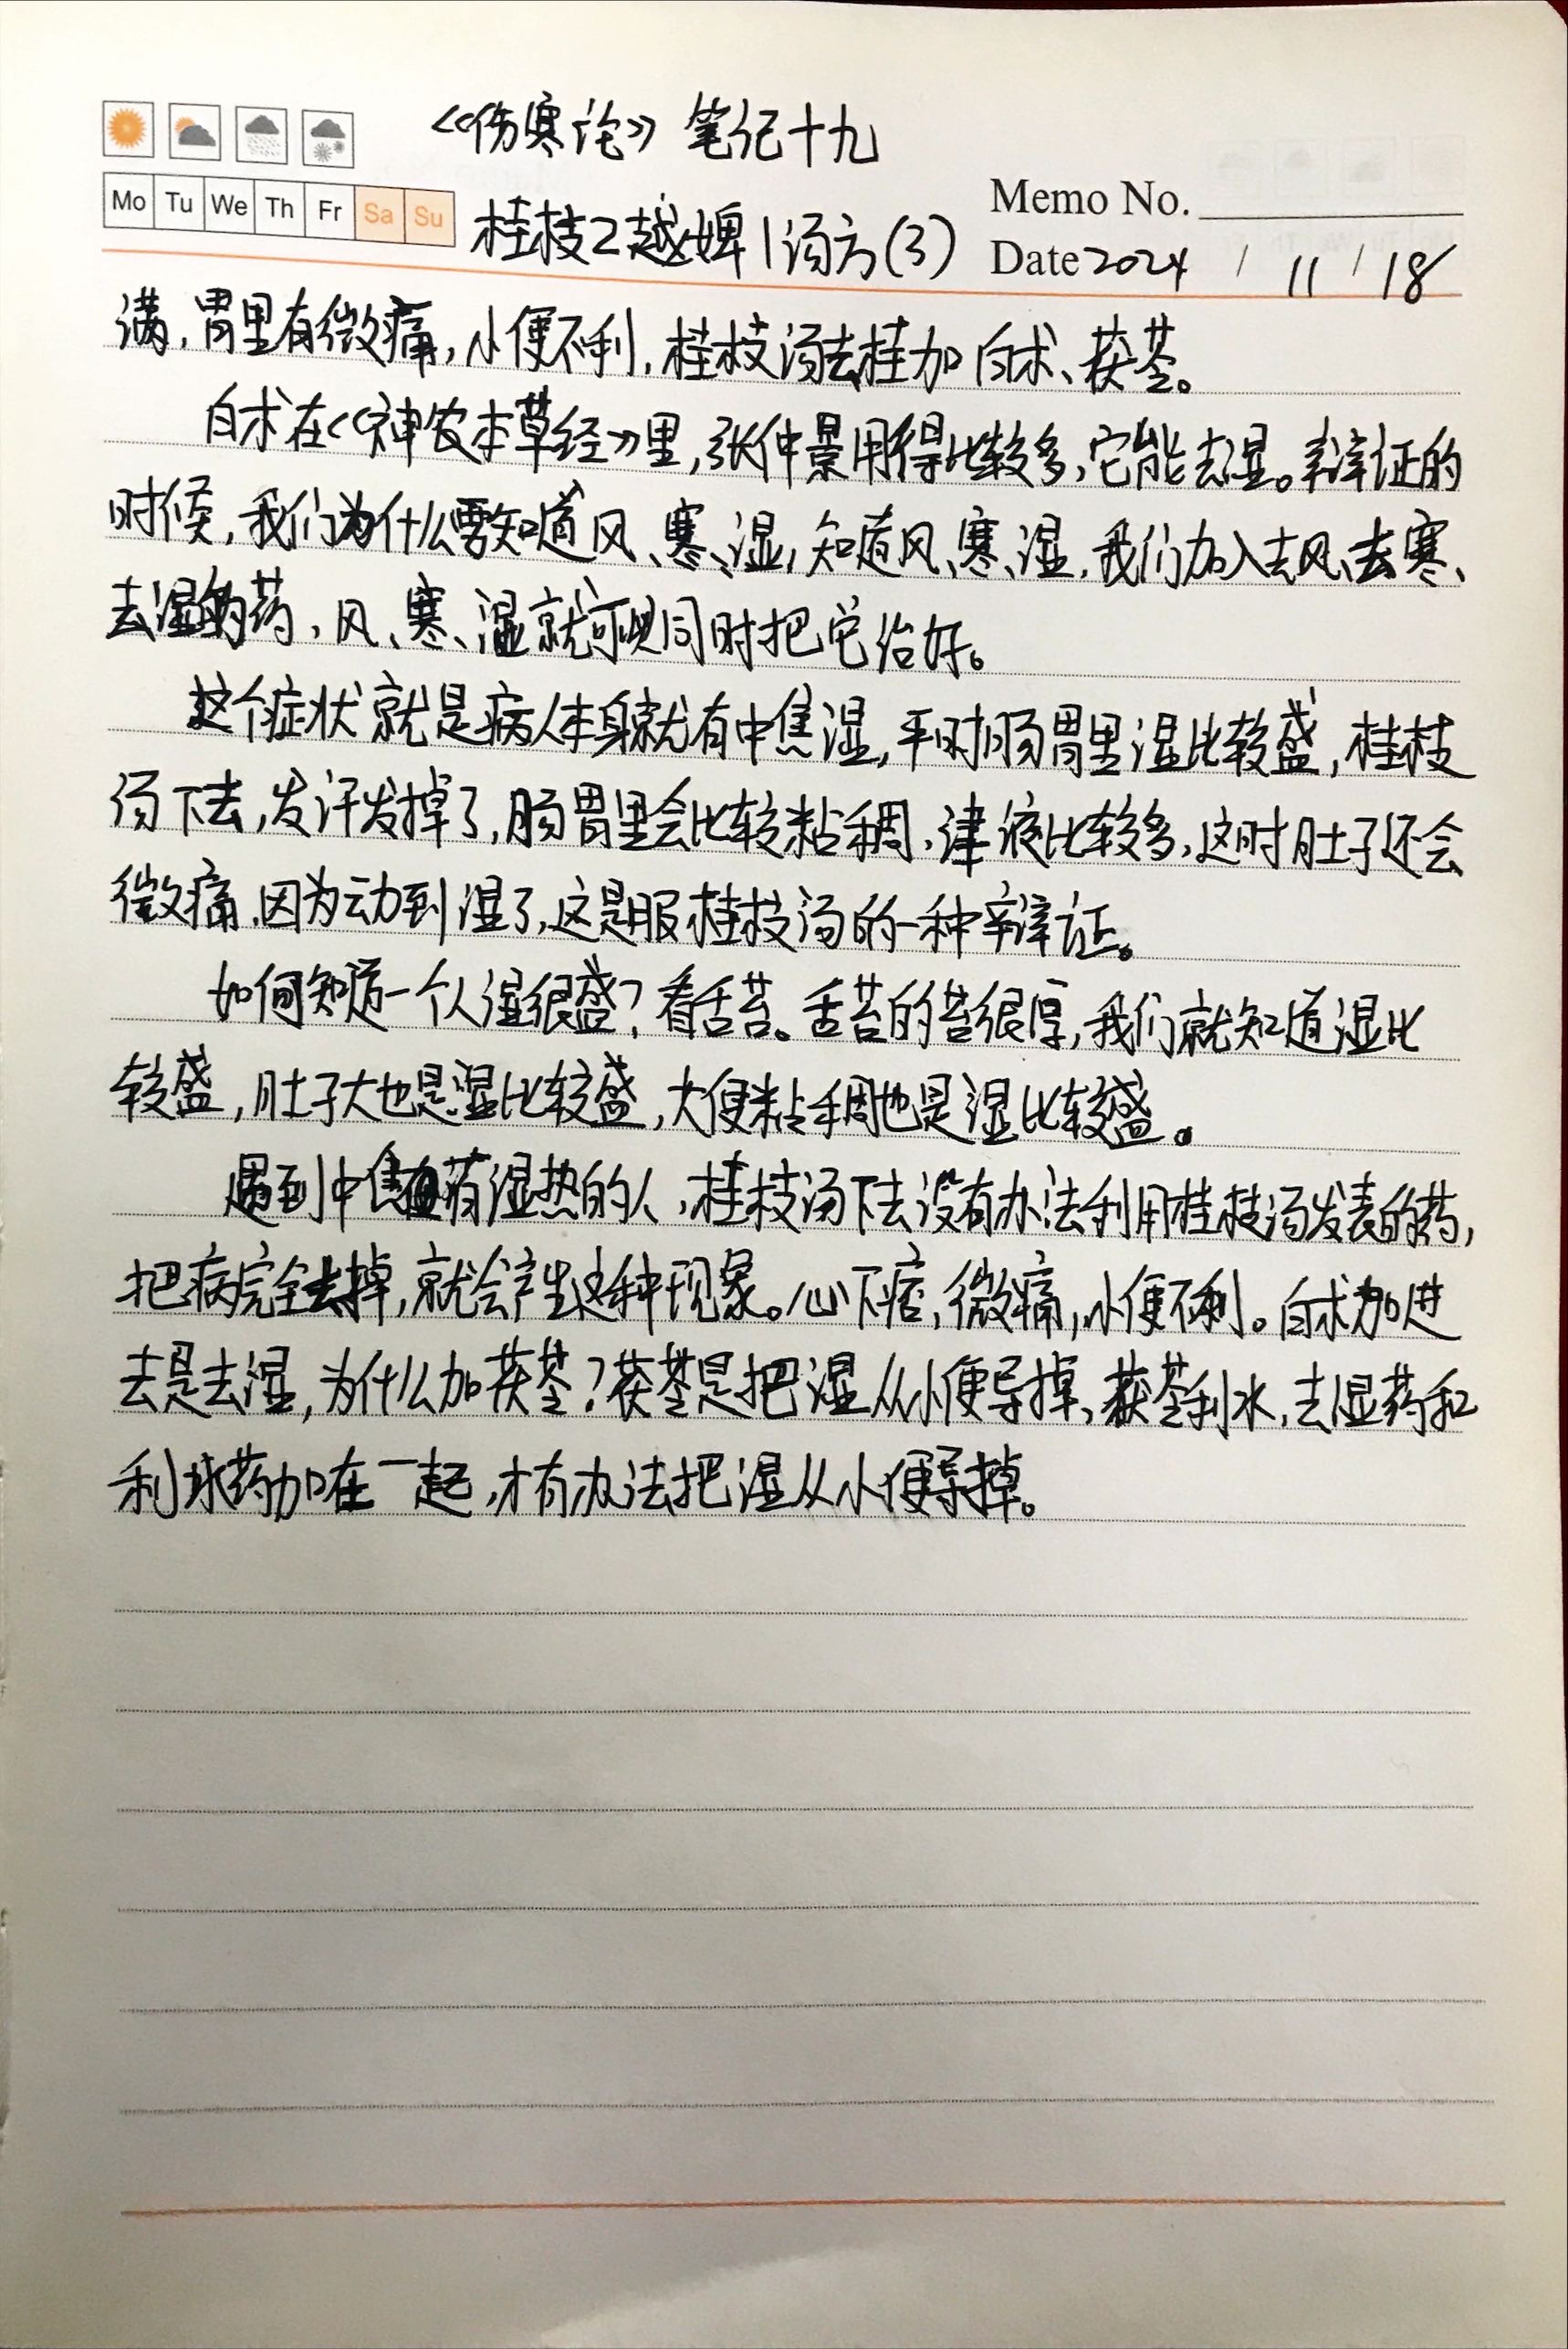 《伤寒论》笔记十九
Mo Tu We Th Fr Sa Su
桂枝2越婢1汤方(3)
Memo No.
Date 2024 / 11 / 18
满,胃里有微痛,小便不利,桂枝汤去桂加白术、茯苓。
白术在《神农本草经》里,张仲景用得比较多,它能去湿。辩证的
时候,我们为什么要知道风、寒、湿,知道风、寒、湿,我们加入去风、去寒、
去湿的药,风、寒、湿就可以同时把它治好。
这个症状就是病人本身就有中焦湿,平时肠胃里湿比较盛,桂枝
汤下去,发汗发掉了,肠胃里会比较粘稠,津液比较多,这时肚子还会
微痛,因为动到湿了,这是服桂枝汤的一种辩证。
如何知道一个人湿很盛?看舌苔。舌苔的苔很厚,我们就知道湿比
较盛,肚子大也是湿比较盛,大便粘稠也是湿比较盛。
遇到中焦有湿热的人,桂枝汤下去没有办法利用桂枝汤发表的药,
把病完全去掉,就会产生这种现象。心下痞,微痛,小便不利。白术加进
去是去湿,为什么加茯苓?茯苓是把湿从小便导掉,茯苓利水,去湿药和
利水药加在一起,才有办法把湿从小便导掉。